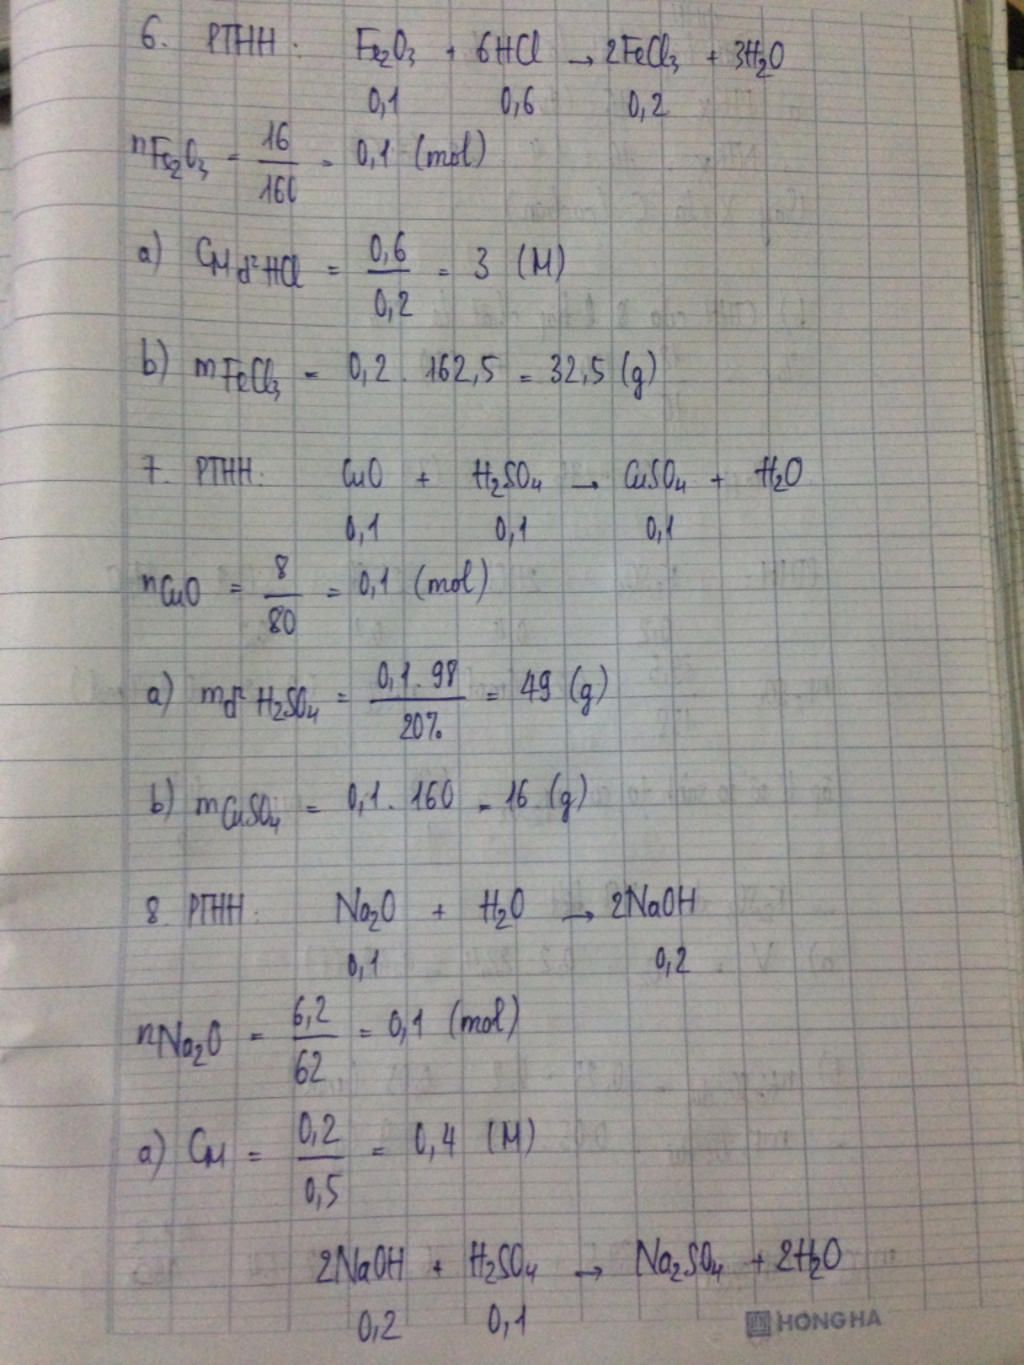 6. PTHH: Fe₂O₃ + 6HCl → 2FeCl₃ + 3H₂O
0,1 0,6 0,2
nFe₂O₃ = 16/160 = 0,1 (mol)
a) CM d² HCl = 0,6/0,2 = 3 (M)
b) mFeCl₃ = 0,2 . 162,5 = 32,5 (g)
7. PTHH: CuO + H₂SO₄ → CuSO₄ + H₂O
0,1 0,1 0,1
nCuO = 8/80 = 0,1 (mol)
a) md² H₂SO₄ = 0,1 . 98/20% = 49 (g)
b) mCuSO₄ = 0,1 . 160 = 16 (g)
8. PTHH: Na₂O + H₂O → 2NaOH
0,1 0,2
nNa₂O = 6,2/62 = 0,1 (mol)
a) CM = 0,2/0,5 = 0,4 (M)
2NaOH + H₂SO₄ → Na₂SO₄ + 2H₂O
0,2 0,1
HONG HA